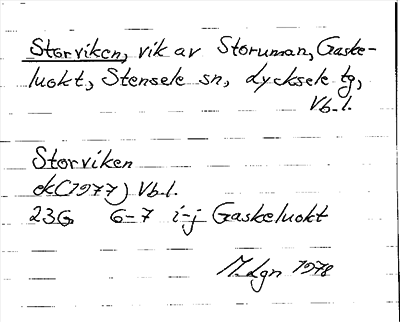 Storviken, vik av Storuman, Gaske-
luokt, Stensele sn, Lycksele tg,
Vb.l.
Storviken
ek(1977) Vb.l.
23G 6-7 i-j Gaskeluokt
M.Lgn 1978